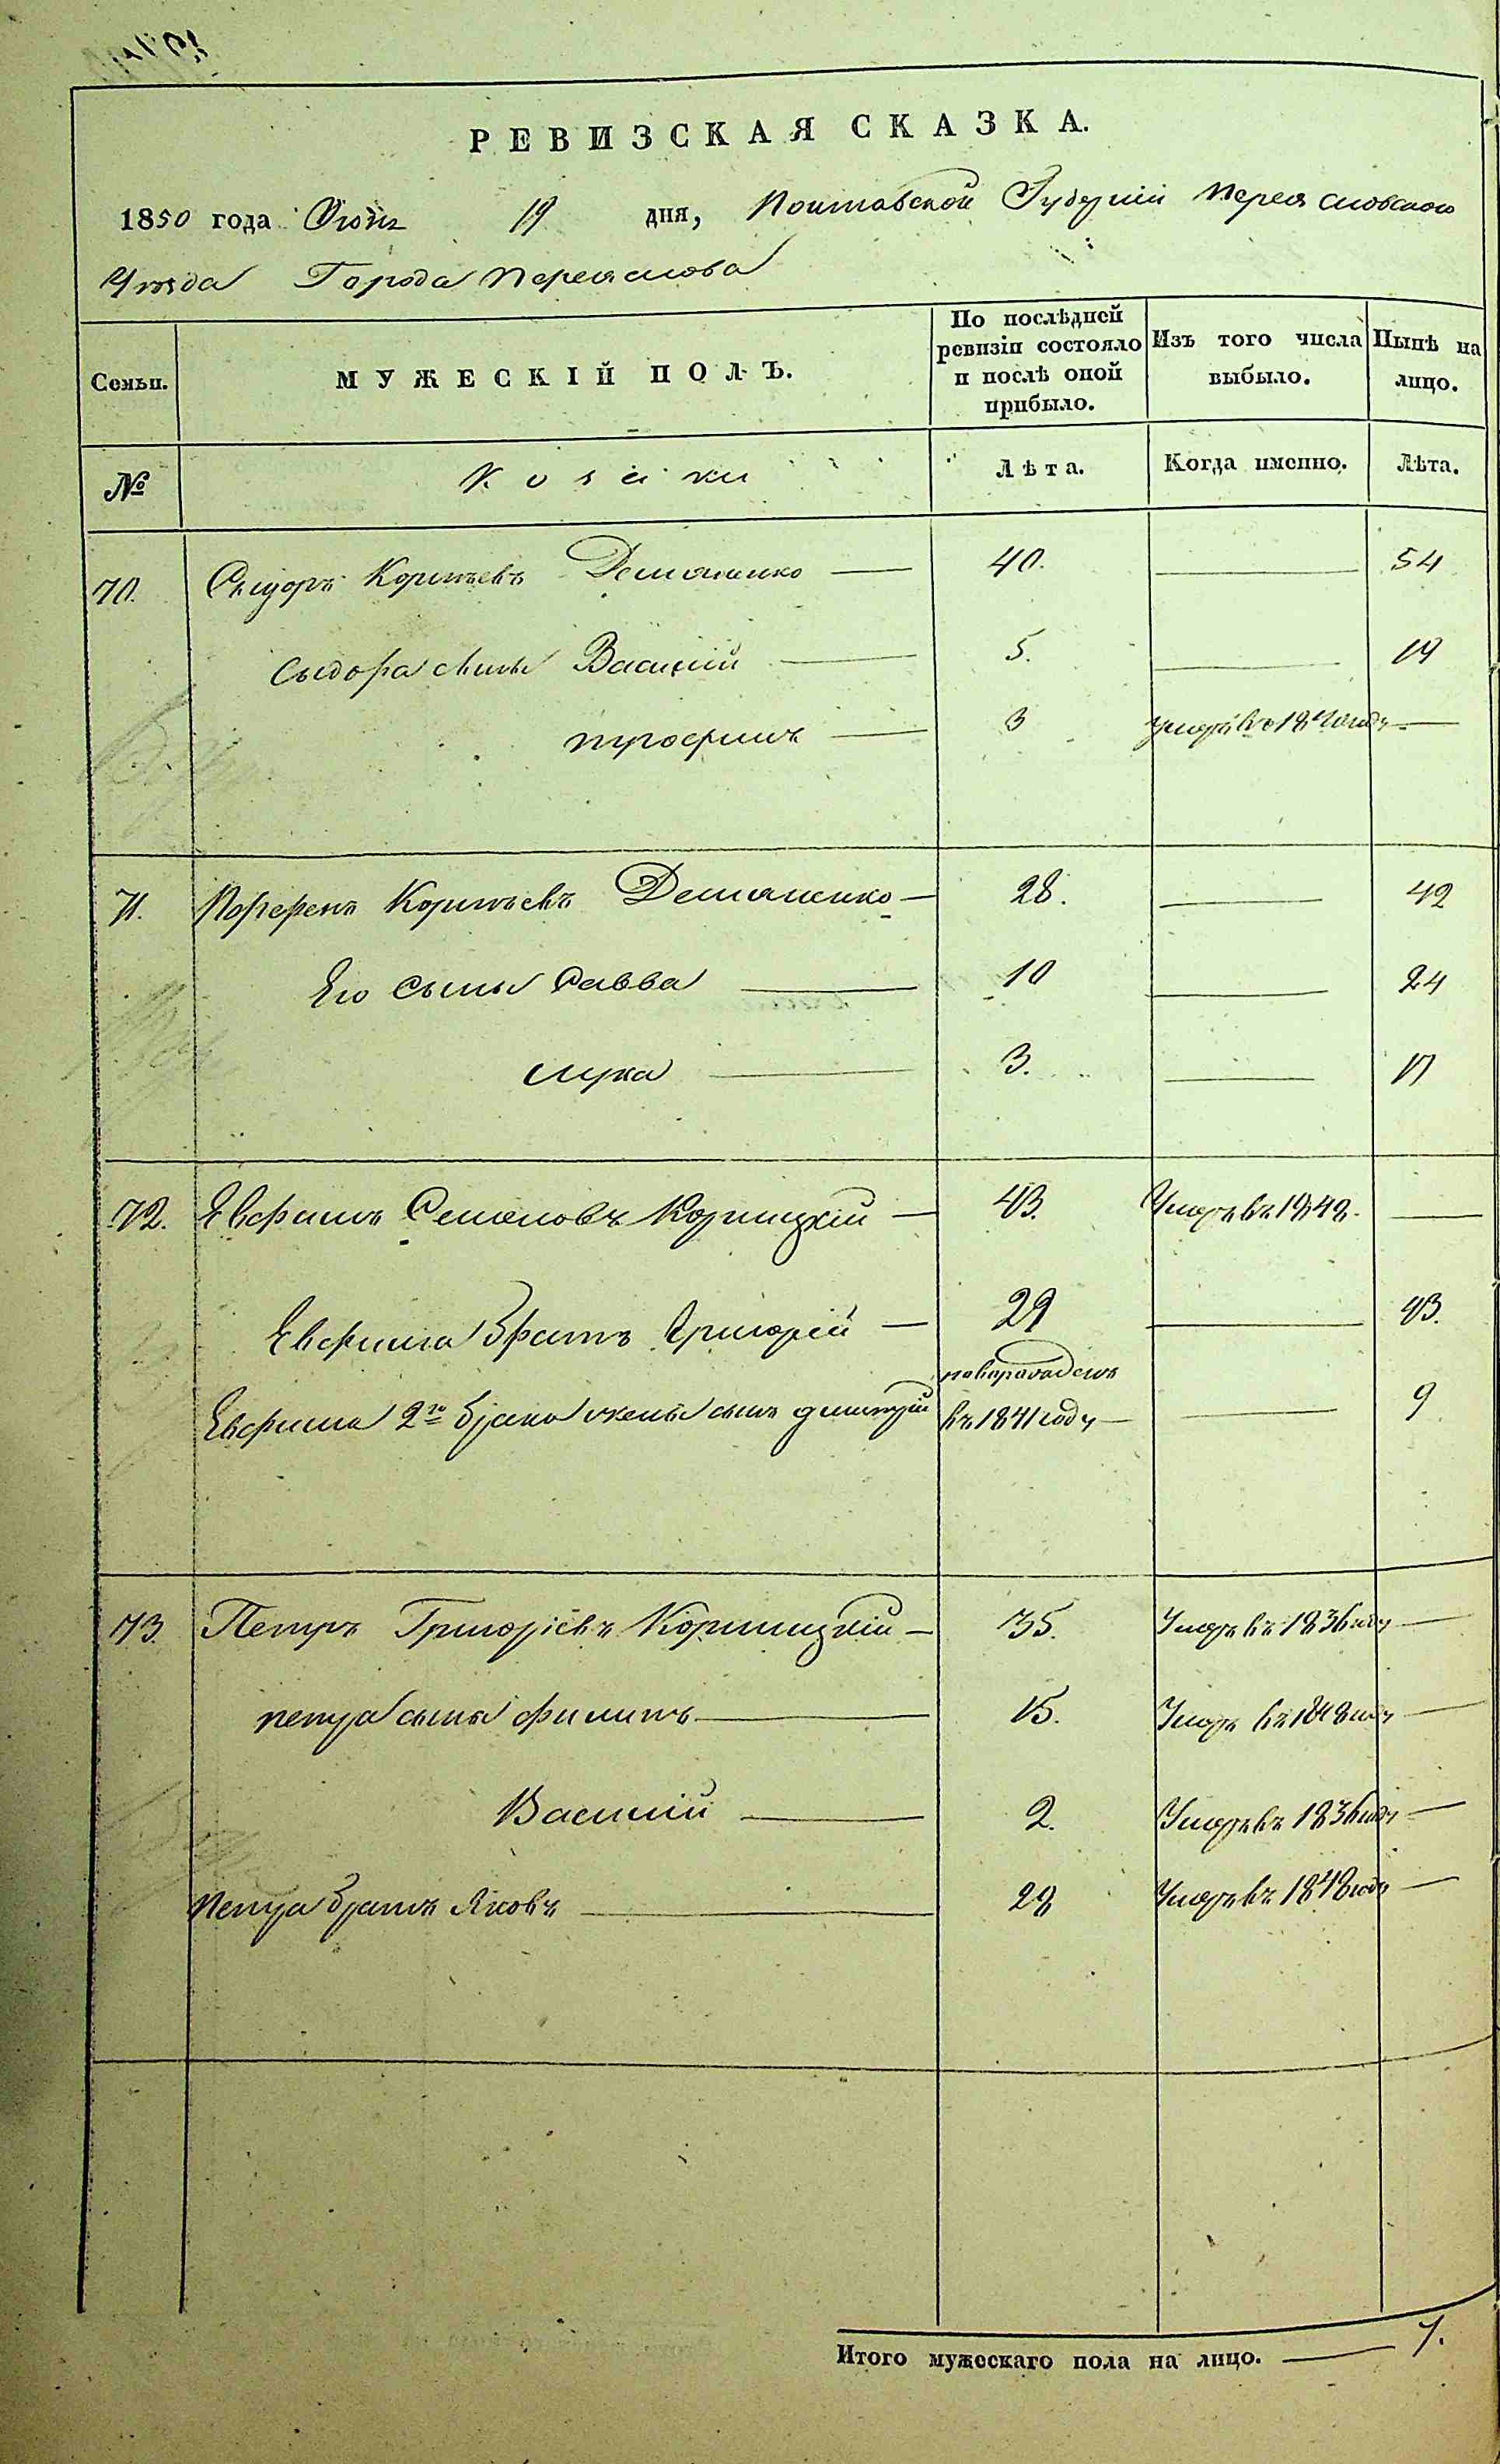 РЕВИЗСКАЯ СКАЗКА.
1850 года Июня 19 дня, Полтавской Губернии Переясловского
Уезда Города Переяслова
Семьи. МУЖЕСКІЙ ПОЛЪ. По послѣдней ревизіи состояло и послѣ оной прибыло. Изъ того числа выбыло. Нынѣ на лицо.
№ Козаки Лѣта. Когда именно. Лѣта.
70. Сидоръ Корнѣевъ Демяненко — 40. — 54
Сыдора сыны Василій — 5. — 19
Трофимъ — 3 умеръ въ году —
71. Корнѣевъ Демяненко — 28. — 42
Его сыны Савва — 10 — 24
Лука — 3. — 17
72. Евфимъ Семеновъ Корницкій — 43. Умеръ въ 1848. —
Евфима братъ Григорій — 29 — 43.
новорожденъ
Евфима 2го брака жены сынъ Дмитрій въ 1841 году — — 9
73. Петръ Григоріевъ Корницкій — 35. Умеръ въ 1836 году —
Петра сыны Филипъ — 15. Умеръ въ 1848 году —
Василій — 2. Умеръ въ 1836 году —
Петра братъ Яковъ — 28 Умеръ въ 1848 году —
Итого мужескаго пола на лицо. — 7.